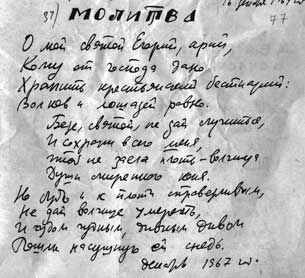 37) МОЛИТВА
77
О мой святой Егорий, арий,
Кому от господа дано
Хранить крестьянский бестиарий:
Волков и лошадей равно.
святой, не дай случится,
И сохрани всего меня,
Чтоб не заела плоть-волчица
Души смиренного коня.
Но будь и к плоти справедливым,
Не дай волчице умереть,
И чудом чудным, дивным дивом
Пошли насущную ей снедь.
декабрь 1967 г.